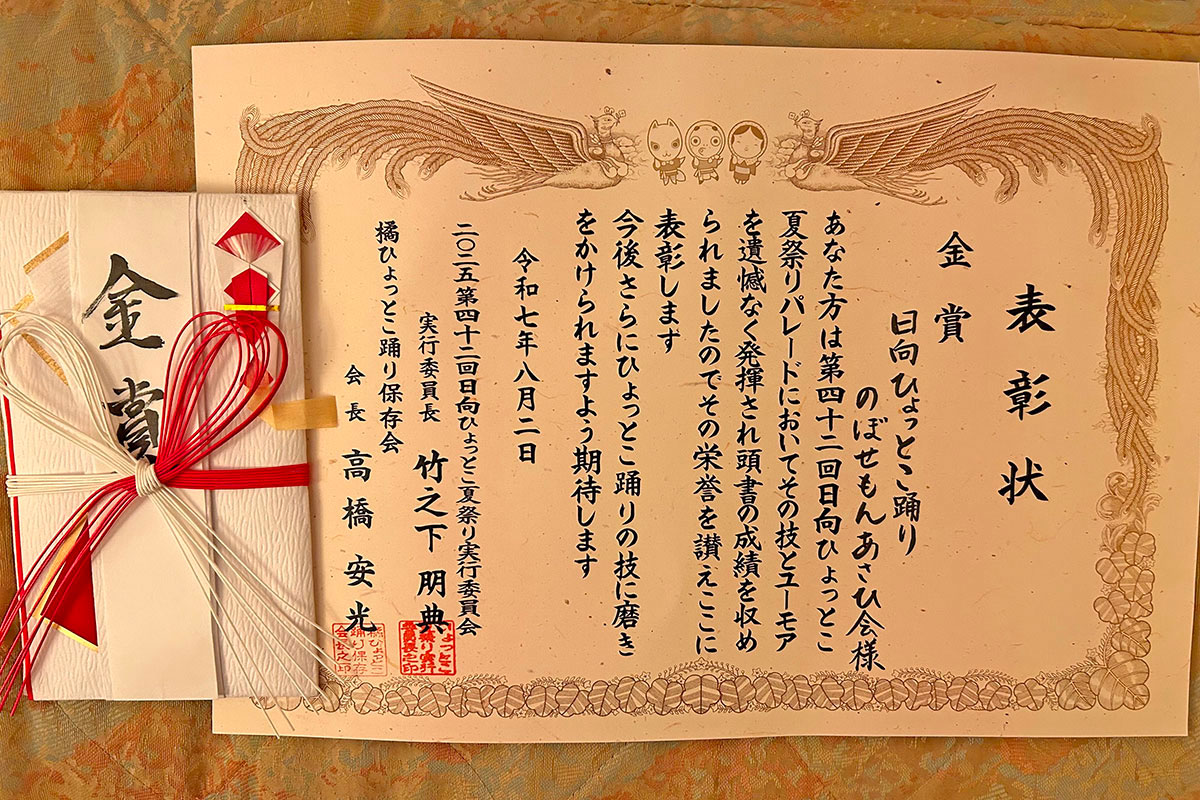 表彰状
金賞
日向ひょっとこ踊り
のぼせもんあさひ会様
あなた方は第四十二回日向ひょっとこ
夏祭りパレードにおいてその技とユーモア
を遺憾なく発揮され頭書の成績を収め
られましたのでその栄誉を讃えここに
表彰します
今後さらにひょっとこ踊りの技に磨き
をかけられますよう期待します
令和七年八月二日
二〇二五第四十二回日向ひょっとこ夏祭り実行委員会
実行委員長 竹之下明典
橘ひょっとこ踊り保存会
会長 高橋安光
金賞